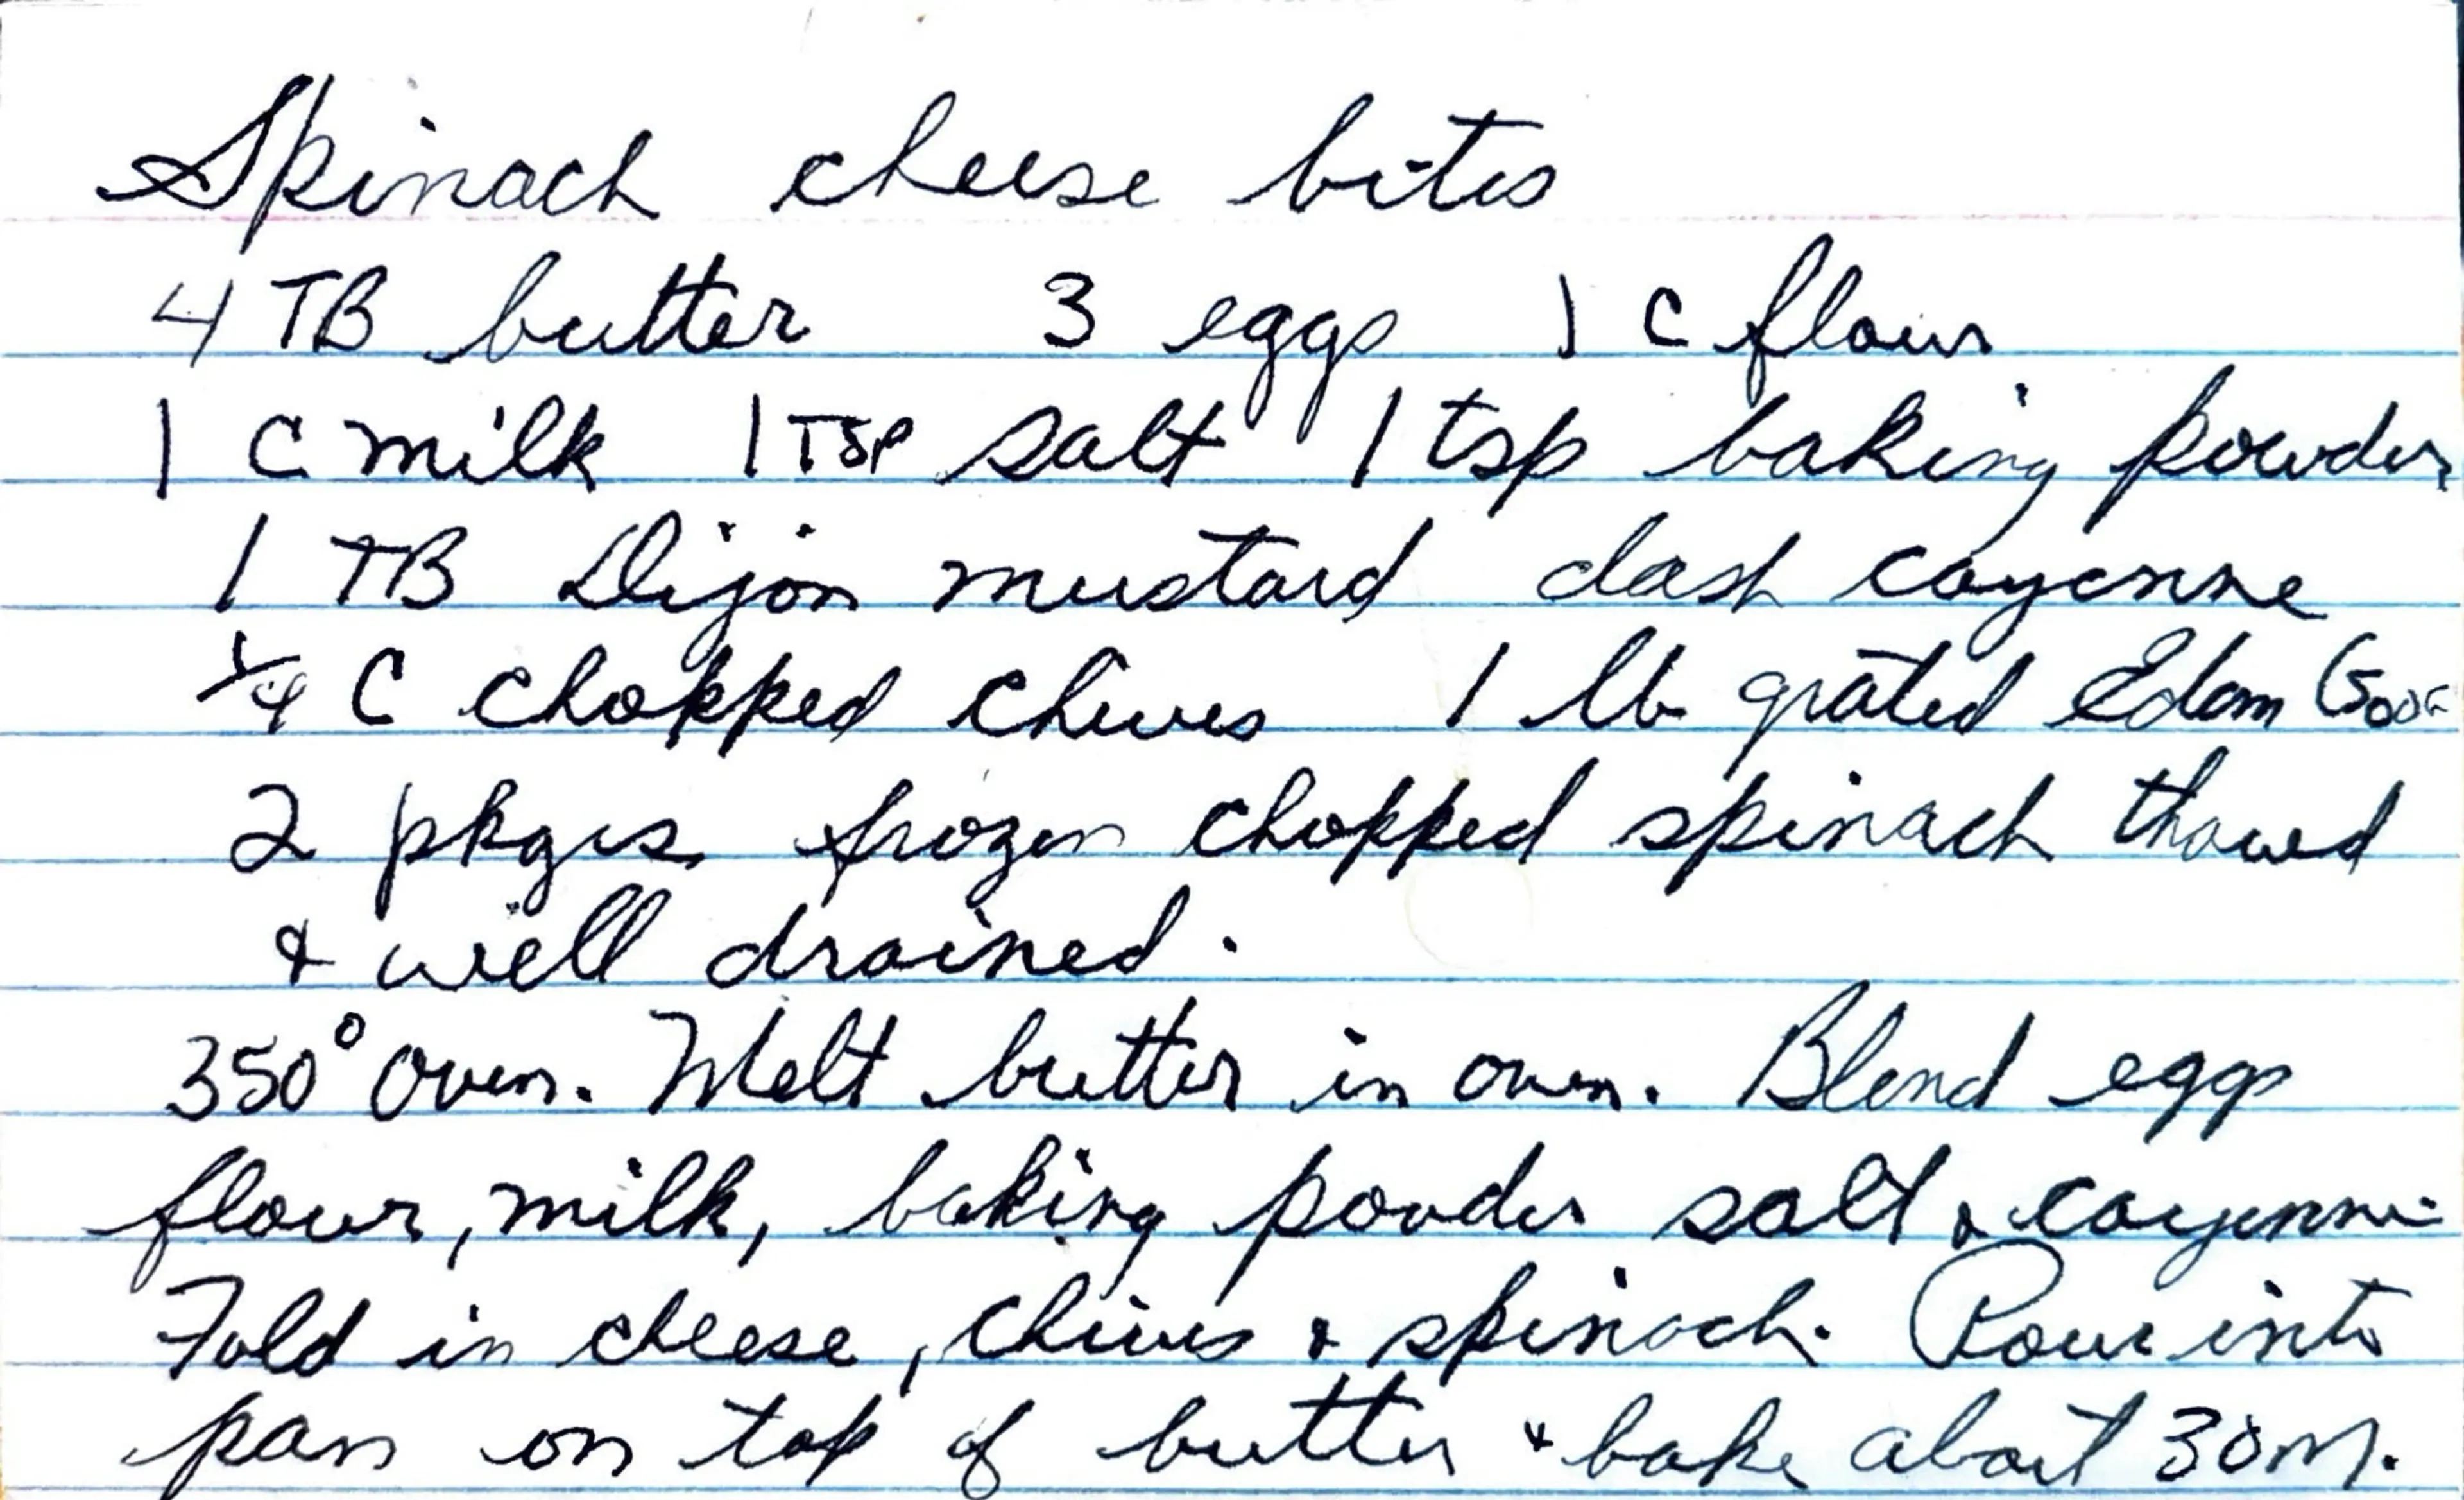 Spinach cheese bites
4 TB butter 3 eggs 1 c flour
1 c milk 1 Tsp salt 1 tsp baking powder
1 TB Dijon mustard dash cayenne
1/4 C chopped chives 1 lb grated Edam
2 pkges frozen chopped spinach thawed
& well drained.
350° oven. Melt butter in oven. Blend eggs
flour, milk, baking powder salt & cayenne.
Fold in cheese, chives & spinach. Pour into
pan on top of butter & bake about 30 m.